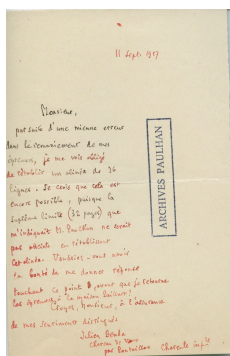 11 Sept 1927
Monsieur,
par suite d'une mienne erreur
dans le remaniement de mes
épreuves, je me vois obligé
de rétablir un alinéa de 26
lignes. Je crois que cela est
encore possible, puisque la
suprême limite (32 pages) que
m'indiquait M. Paulhan ne serait
pas atteinte en rétablissant
cet alinéa. Voudriez-vous avoir
la bonté de me donner réponse
touchant ce point, avant que je retourne
les épreuves à la maison
Croyez, Monsieur, à l'assurance
de mes sentiments distingués
Julien Benda
par Charente infre
ARCHIVES PAULHAN